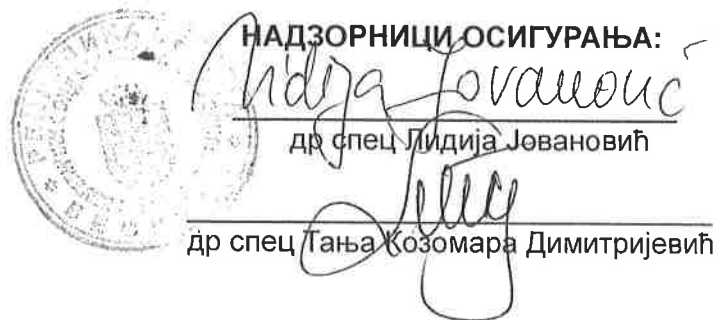 НАДЗОРНИЦИ ОСИГУРАЊА:
Lidija Jovanović
др спец Лидија Јовановић
др спец Тања Козомара Димитријевић